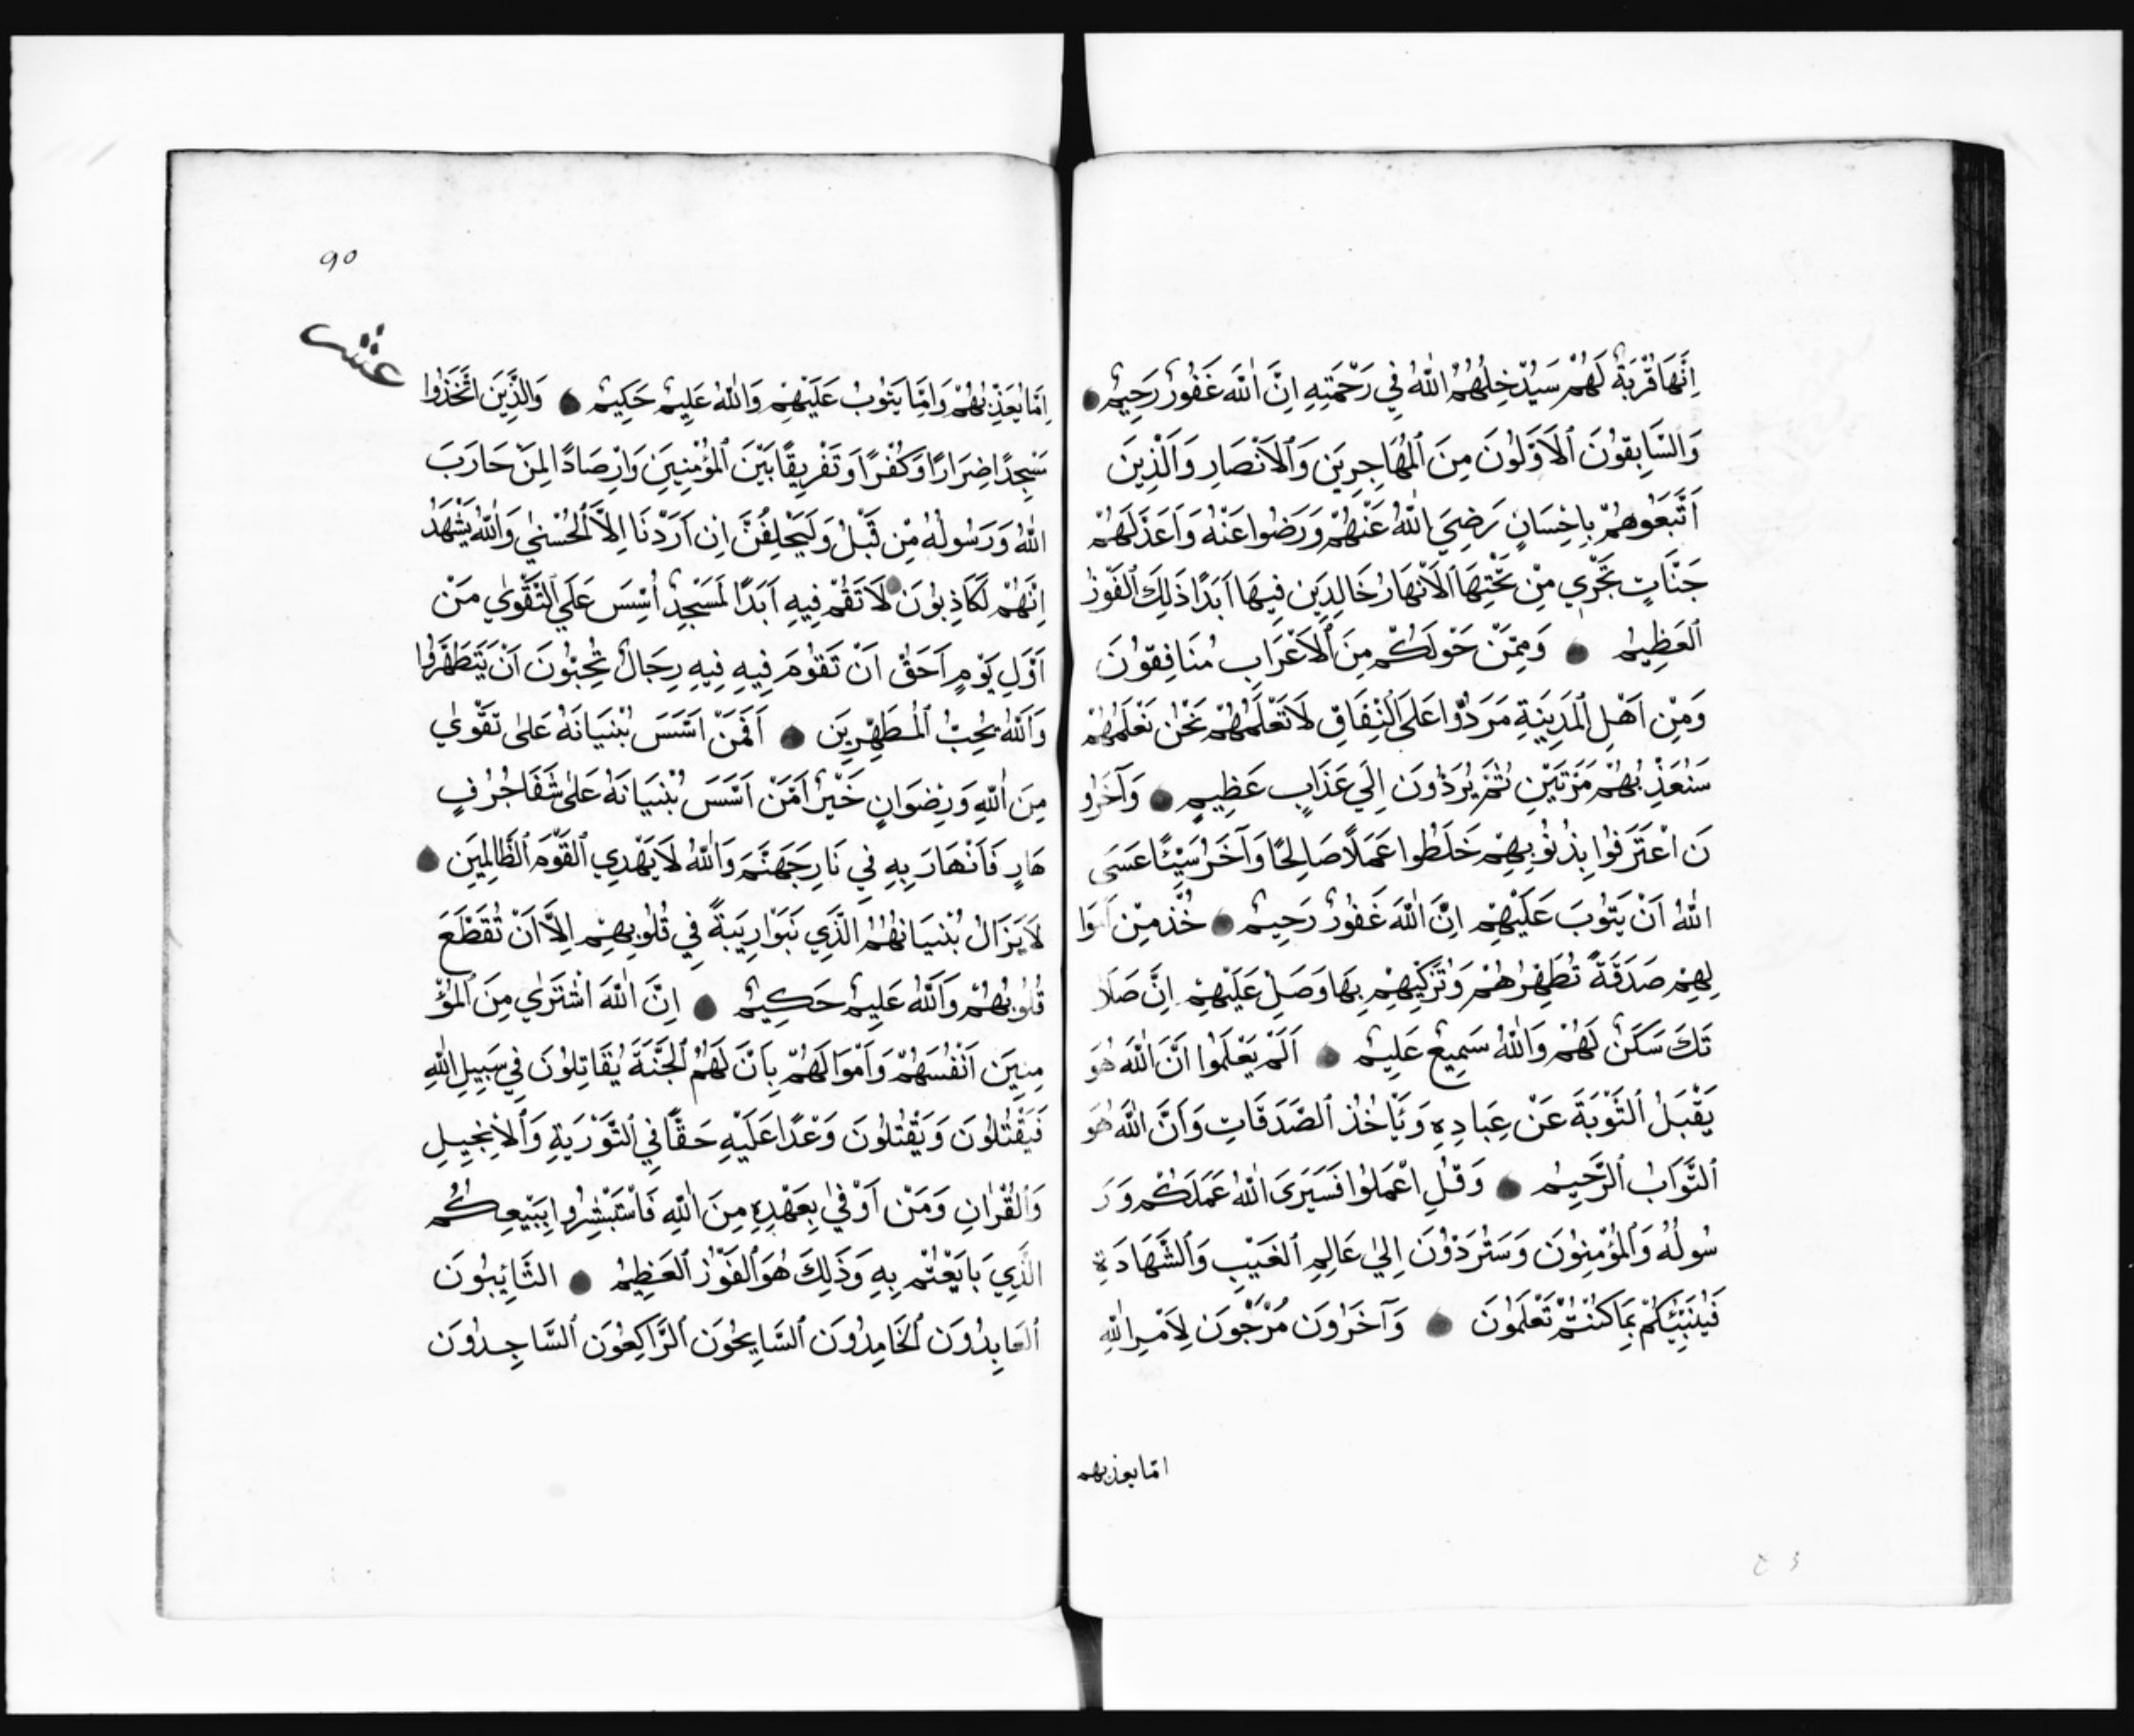 اِنَّهَا قُرْبَةٌ لَهُمْ سَيُدْخِلُهُمُ اللّٰهُ فِي رَحْمَتِهِ اِنَّ اللّٰهَ غَفُورٌ رَحِيمٌ
وَالسَّابِقُونَ الْاَوَّلُونَ مِنَ الْمُهَاجِرِينَ وَالْاَنْصَارِ وَالَّذِينَ
اتَّبَعُوهُمْ بِاِحْسَانٍ رَضِيَ اللّٰهُ عَنْهُمْ وَرَضُوا عَنْهُ وَاَعَدَّ لَهُمْ
جَنَّاتٍ تَجْرِي مِنْ تَحْتِهَا الْاَنْهَارُ خَالِدِينَ فِيهَا اَبَدًا ذَلِكَ الْفَوْزُ
الْعَظِيمُ وَمِمَّنْ حَوْلَكُمْ مِنَ الْاَعْرَابِ مُنَافِقُونَ
وَمِنْ اَهْلِ الْمَدِينَةِ مَرَدُوا عَلَى النِّفَاقِ لَا تَعْلَمُهُمْ نَحْنُ نَعْلَمُهُمْ
سَنُعَذِّبُهُمْ مَرَّتَيْنِ ثُمَّ يُرَدُّونَ اِلَي عَذَابٍ عَظِيمٍ وَآخَرُو
نَ اعْتَرَفُوا بِذُنُوبِهِمْ خَلَطُوا عَمَلًا صَالِحًا وَآخَرَ سَيِّئًا عَسَى
اللّٰهُ اَنْ يَتُوبَ عَلَيْهِمْ اِنَّ اللّٰهَ غَفُورٌ رَحِيمٌ خُذْ مِنْ اَمْوَا
لِهِمْ صَدَقَةً تُطَهِّرُهُمْ وَتُزَكِّيهِمْ بِهَا وَصَلِّ عَلَيْهِمْ اِنَّ صَلَا
تَكَ سَكَنٌ لَهُمْ وَاللّٰهُ سَمِيعٌ عَلِيمٌ اَلَمْ يَعْلَمُوا اَنَّ اللّٰهَ هُوَ
يَقْبَلُ التَّوْبَةَ عَنْ عِبَادِهِ وَيَأْخُذُ الصَّدَقَاتِ وَاَنَّ اللّٰهَ هُوَ
التَّوَّابُ الرَّحِيمُ وَقُلِ اعْمَلُوا فَسَيَرَى اللّٰهُ عَمَلَكُمْ وَرَ
سُولُهُ وَالْمُؤْمِنُونَ وَسَتُرَدُّونَ اِلٰي عَالِمِ الْغَيْبِ وَالشَّهَادَةِ
فَيُنَبِّئُكُمْ بِمَا كُنْتُمْ تَعْلَمُونَ وَآخَرُونَ مُرْجَوْنَ لِاَمْرِ اللّٰهِ
اما يعذبهم
٩٥
عشر
اِمَّا يُعَذِّبُهُمْ وَاِمَّا يَتُوبُ عَلَيْهِمْ وَاللّٰهُ عَلِيمٌ حَكِيمٌ وَالَّذِينَ اتَّخَذُوا
مَسْجِدًا ضِرَارًا وَكُفْرًا وَتَفْرِيقًا بَيْنَ الْمُؤْمِنِينَ وَاِرْصَادًا لِمَنْ حَارَبَ
اللّٰهَ وَرَسُولَهُ مِنْ قَبْلُ وَلَيَحْلِفُنَّ اِنْ اَرَدْنَا اِلَّا الْحُسْنٰي وَاللّٰهُ يَشْهَدُ
اِنَّهُمْ لَكَاذِبُونَ لَا تَقُمْ فِيهِ اَبَدًا لَمَسْجِدٌ اُسِّسَ عَلَي التَّقْوٰي مِنْ
اَوَّلِ يَوْمٍ اَحَقُّ اَنْ تَقُومَ فِيهِ فِيهِ رِجَالٌ يُحِبُّونَ اَنْ يَتَطَهَّرُوا
وَاللّٰهُ يُحِبُّ الْمُطَهِّرِينَ اَفَمَنْ اَسَّسَ بُنْيَانَهُ عَلٰى تَقْوٰي
مِنَ اللّٰهِ وَرِضْوَانٍ خَيْرٌ اَمْ مَنْ اَسَّسَ بُنْيَانَهُ عَلٰى شَفَا جُرُفٍ
هَارٍ فَانْهَارَ بِهِ فِي نَارِ جَهَنَّمَ وَاللّٰهُ لَا يَهْدِي الْقَوْمَ الظَّالِمِينَ
لَا يَزَالُ بُنْيَانُهُمُ الَّذِي بَنَوْا رِيبَةً فِي قُلُوبِهِمْ اِلَّا اَنْ تُقَطَّعَ
قُلُوبُهُمْ وَاللّٰهُ عَلِيمٌ حَكِيمٌ اِنَّ اللّٰهَ اشْتَرٰي مِنَ الْمُؤْ
مِنِينَ اَنْفُسَهُمْ وَاَمْوَالَهُمْ بِاَنَّ لَهُمُ الْجَنَّةَ يُقَاتِلُونَ فِي سَبِيلِ اللّٰهِ
فَيَقْتُلُونَ وَيُقْتَلُونَ وَعْدًا عَلَيْهِ حَقًّا فِي التَّوْرَيةِ وَالْاِنْجِيلِ
وَالْقُرْاٰنِ وَمَنْ اَوْفٰي بِعَهْدِهِ مِنَ اللّٰهِ فَاسْتَبْشِرُوا بِبَيْعِكُمُ
الَّذِي بَايَعْتُمْ بِهِ وَذَلِكَ هُوَ الْفَوْزُ الْعَظِيمُ التَّائِبُونَ
الْعَابِدُونَ الْحَامِدُونَ السَّايِحُونَ الرَّاكِعُونَ السَّاجِدُونَ